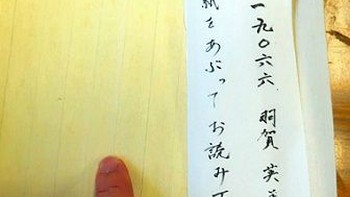 一九〇六六 羽賀 英
紙をあぶってお読み下